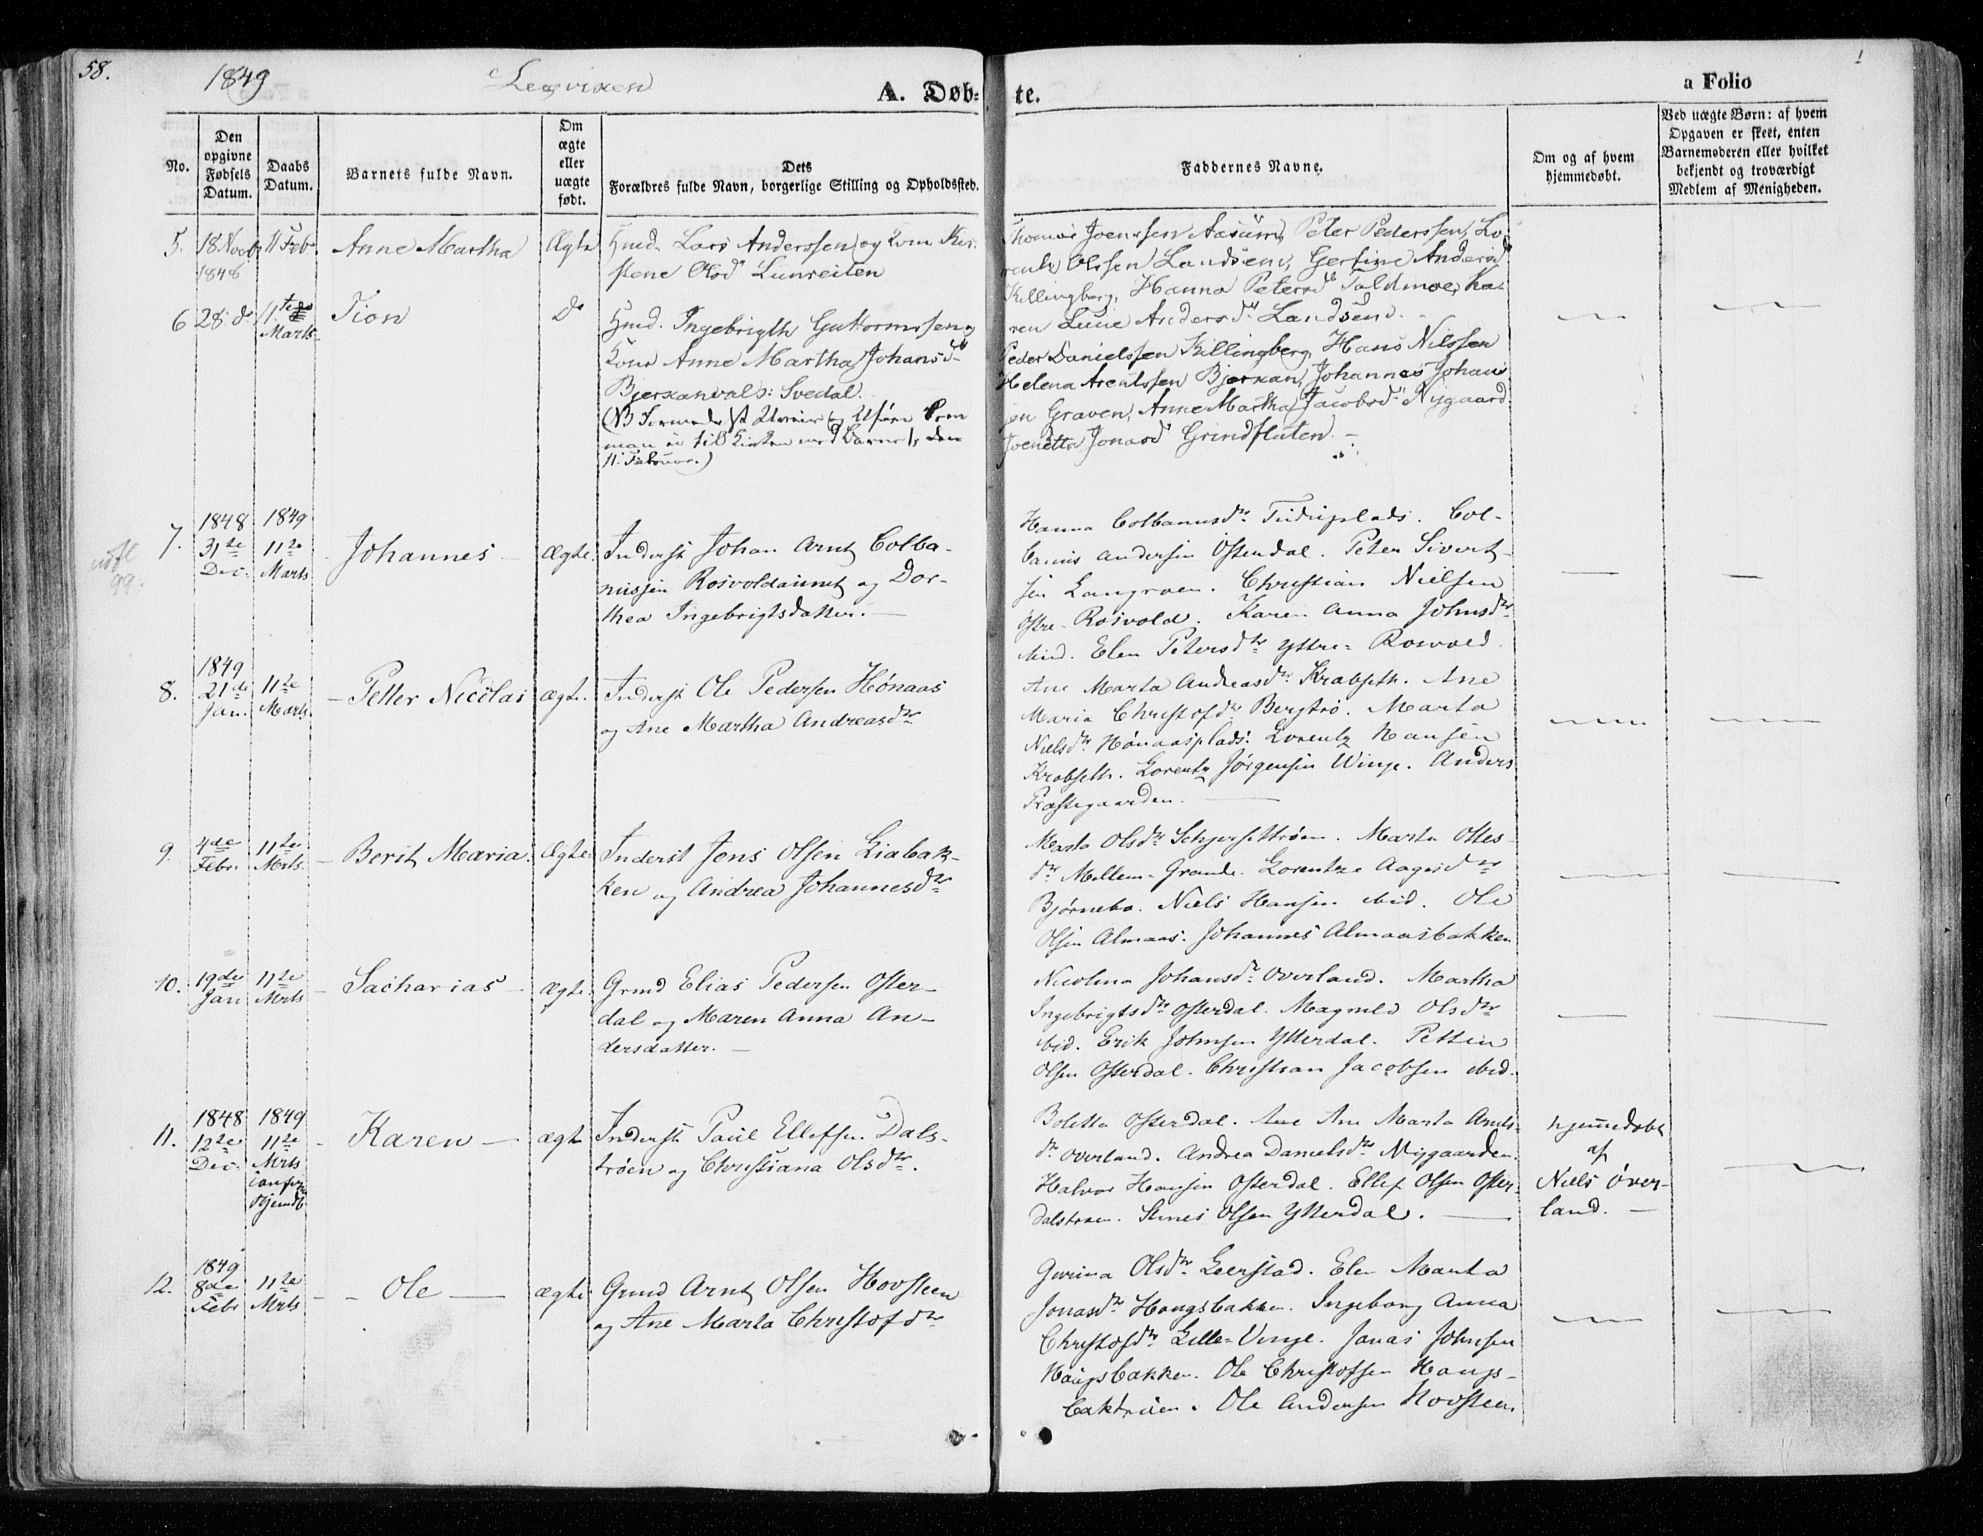 58.
1849
A. Døb-
te.
a Folio
No.
Den
opgivne
Fødsels
Datum.
Daabs
Datum.
Barnets fulde Navn.
Om
ægte
eller
uægte
født.
Dets
Forældres fulde Navn, borgerlige Stilling og Opholdssted.
Faddernes Navne.
Om og af hvem
hjemmedøbt.
Ved uægte Børn: af hvem
Opgaven er skeet, enten
Barnemoderen eller hvilket
bekjendt og troværdigt
Medlem af Menigheden.
5.
1848
11 Feb.
Anne Martha
Ægte
Hmd. Lars Anderssen og Kone Kir-
stene Olsd Lünreiten
Joenssen Aasum, Peter Pederssen, Lo-
rents Olssen Landsem, Gertine Andersd
Killingberg, Hanna Petersd Foldmoe, Ka-
ren Andersd Landsem.
6
28 do
11te
Marts
Tion
do
Hmd. Ingebrigth Guttormssen og
Kone Anne Martha Johansd
Svedal.
11 Februar.)
Peder Danielssen Killingberg, Hans Nilssen
Helena Arentssen Bjerkan, Johannes Johan
sen Graven, Anne Martha Jacobsd Nygaard
Jonasd Grindfluten.
7.
1848
31te
Dec.
1849
11te
Marts
Johannes
ægte.
Inderst Johan Arnt Colba-
nussen Rosvoldaunet og Dor-
thea Ingebrigtsdatter.
Hanna Colbanusdr. Col-
banus Andersen Østerdal. Peter Sivert-
sen Langroen. Christian Nielsen
østre Rosvold. Karen Anna Johnsdr
ibid. Elen Petersdr Yttre-Rosvold.
8.
1849
21de
Jan.
11te
Marts.
Petter Nicolai
ægte.
Inderst Ole Pedersen Hønaas
og Ane Martha Andreasdr
Ane Marta Andreasdr Krabseth. Ane
Maria Christofdr Bergtrø. Marta
Nielsdr Hønaasplads. Lorentz Hansen
Krabseth. Lorentz Jørgensen Winje. Anders
Præstegaarden.
9.
4de
Febr.
11te
Mrts.
Berit Maria.
ægte
Inderst Jens Olsen Liabak-
ken og Andrea Johannesdr
Marta Olsdr. Marta Ottes-
dr Mellem-Grande. Lorentze Aagesdr
Bjørnebo. Niels Hansen ibid. Ole
Olsen Almaas. Johannes Almaasbakken
10.
19de
Jan
11te
Mrts
Sacharias
ægte.
Grmd Elias Pedersen Øster-
dal og Maren Anna An-
dersdatter.
Nicolina Johansdr Overland. Martha
Ingebrigtsdr Østerdal. Magnild Olsdr
ibid. Erik Johnsen Ytterdal. Petter
Olsen Østerdal. Christian Jacobsen ibid.
11.
1848
12te
Dec.
1849
11te
Mrts
Karen
ægte
Inderst Paul Ellefsen Dals-
trøen og Christiana Olsdr.
Boletta Østerdal. Ane Ane Marta Arnts-
dr Overland. Andrea Danielsdr Nygaarden.
Halvor Hansen Østerdal. Ellef Olsen Øster-
dalstrøen. Olsen Ytterdal.
hjemmedøbt
af
Niels Over-
land.
12.
1849
8de
Febr
11te
Mrts
Ole
ægte
Grmd Arnt Olsen Hovsteen
og Ane Marta Christofdr
Gurina Olsdr Leerstad. Elen Marta
Jonasdr Haugsbakken. Ingeborg Anna
Christofdr Lille-Vinje. Jonas Johnsen
Haugsbakken. Ole Christofsen Haugs-
baktrøen. Ole Andersen Hovsteen.